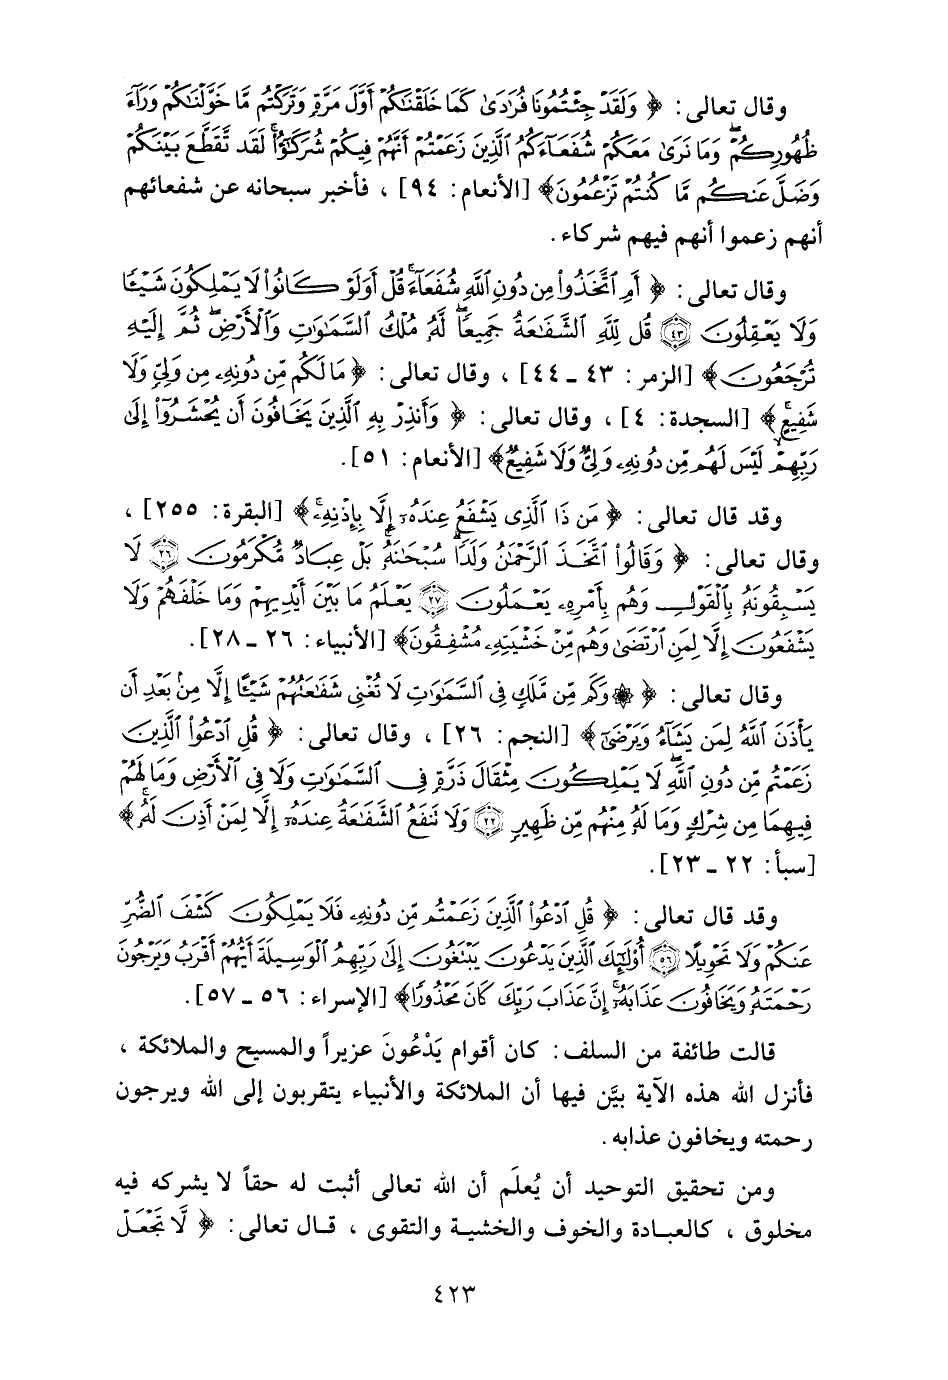 وقال تعالى: ﴿ وَلَقَدْ جِئْتُمُونَا فُرَادَىٰ كَمَا خَلَقْنَاكُمْ أَوَّلَ مَرَّةٍ وَتَرَكْتُم مَّا خَوَّلْنَاكُمْ وَرَآءَ
ظُهُورِكُمْ وَمَا نَرَىٰ مَعَكُمْ شُفَعَآءَكُمُ ٱلَّذِينَ زَعَمْتُمْ أَنَّهُمْ فِيكُمْ شُرَكَٰٓؤُا۟ لَقَد تَّقَطَّعَ بَيْنَكُمْ
وَضَلَّ عَنكُم مَّا كُنتُمْ تَزْعُمُونَ﴾ [الأنعام: ٩٤] ، فأخبر سبحانه عن شفعائهم
أنهم زعموا أنهم فيهم شركاء.
وقال تعالى: ﴿ أَمِ ٱتَّخَذُوا۟ مِن دُونِ ٱللَّهِ شُفَعَآءَ قُلْ أَوَلَوْ كَانُوا۟ لَا يَمْلِكُونَ شَيْـًٔا
وَلَا يَعْقِلُونَ ۝٤٣ قُل لِّلَّهِ ٱلشَّفَٰعَةُ جَمِيعًا لَّهُۥ مُلْكُ ٱلسَّمَٰوَٰتِ وَٱلْأَرْضِ ثُمَّ إِلَيْهِ
تُرْجَعُونَ﴾ [الزمر: ٤٣ ـ ٤٤] ، وقال تعالى: ﴿ مَا لَكُم مِّن دُونِهِۦ مِن وَلِىٍّ وَلَا
شَفِيعٍ﴾ [السجدة: ٤] ، وقال تعالى: ﴿ وَأَنذِرْ بِهِ ٱلَّذِينَ يَخَافُونَ أَن يُحْشَرُوٓا۟ إِلَىٰ
رَبِّهِمْ لَيْسَ لَهُم مِّن دُونِهِۦ وَلِىٌّ وَلَا شَفِيعٌ﴾ [الأنعام: ٥١].
وقد قال تعالى: ﴿ مَن ذَا ٱلَّذِى يَشْفَعُ عِندَهُۥٓ إِلَّا بِإِذْنِهِۦ﴾ [البقرة: ٢٥٥] ،
وقال تعالى: ﴿ وَقَالُوا۟ ٱتَّخَذَ ٱلرَّحْمَٰنُ وَلَدًا سُبْحَٰنَهُۥ بَلْ عِبَادٌ مُّكْرَمُونَ ۝٢٦ لَا
يَسْبِقُونَهُۥ بِٱلْقَوْلِ وَهُم بِأَمْرِهِۦ يَعْمَلُونَ ۝٢٧ يَعْلَمُ مَا بَيْنَ أَيْدِيهِمْ وَمَا خَلْفَهُمْ وَلَا
يَشْفَعُونَ إِلَّا لِمَنِ ٱرْتَضَىٰ وَهُم مِّنْ خَشْيَتِهِۦ مُشْفِقُونَ﴾ [الأنبياء: ٢٦ ـ ٢٨].
وقال تعالى: ﴿ ۞ وَكَم مِّن مَّلَكٍ فِى ٱلسَّمَٰوَٰتِ لَا تُغْنِى شَفَٰعَتُهُمْ شَيْـًٔا إِلَّا مِنۢ بَعْدِ أَن
يَأْذَنَ ٱللَّهُ لِمَن يَشَآءُ وَيَرْضَىٰٓ﴾ [النجم: ٢٦] ، وقال تعالى: ﴿ قُلِ ٱدْعُوا۟ ٱلَّذِينَ
زَعَمْتُم مِّن دُونِ ٱللَّهِ لَا يَمْلِكُونَ مِثْقَالَ ذَرَّةٍ فِى ٱلسَّمَٰوَٰتِ وَلَا فِى ٱلْأَرْضِ وَمَا لَهُمْ
فِيهِمَا مِن شِرْكٍ وَمَا لَهُۥ مِنْهُم مِّن ظَهِيرٍ ۝٢٢ وَلَا تَنفَعُ ٱلشَّفَٰعَةُ عِندَهُۥٓ إِلَّا لِمَنْ أَذِنَ لَهُۥ﴾
[سبأ: ٢٢ ـ ٢٣].
وقد قال تعالى: ﴿ قُلِ ٱدْعُوا۟ ٱلَّذِينَ زَعَمْتُم مِّن دُونِهِۦ فَلَا يَمْلِكُونَ كَشْفَ ٱلضُّرِّ
عَنكُمْ وَلَا تَحْوِيلًا ۝٥٦ أُو۟لَٰٓئِكَ ٱلَّذِينَ يَدْعُونَ يَبْتَغُونَ إِلَىٰ رَبِّهِمُ ٱلْوَسِيلَةَ أَيُّهُمْ أَقْرَبُ وَيَرْجُونَ
رَحْمَتَهُۥ وَيَخَافُونَ عَذَابَهُۥٓ إِنَّ عَذَابَ رَبِّكَ كَانَ مَحْذُورًا﴾ [الإسراء: ٥٦ ـ ٥٧].
قالت طائفة من السلف: كان أقوام يَدْعُونَ عزيراً والمسيح والملائكة ،
فأنزل الله هذه الآية بيَّن فيها أن الملائكة والأنبياء يتقربون إلى الله ويرجون
رحمته ويخافون عذابه.
ومن تحقيق التوحيد أن يُعلَم أن الله تعالى أثبت له حقاً لا يشركه فيه
مخلوق ، كالعبادة والخوف والخشية والتقوى ، قال تعالى: ﴿ لَّا تَجْعَلْ
٤٢٣